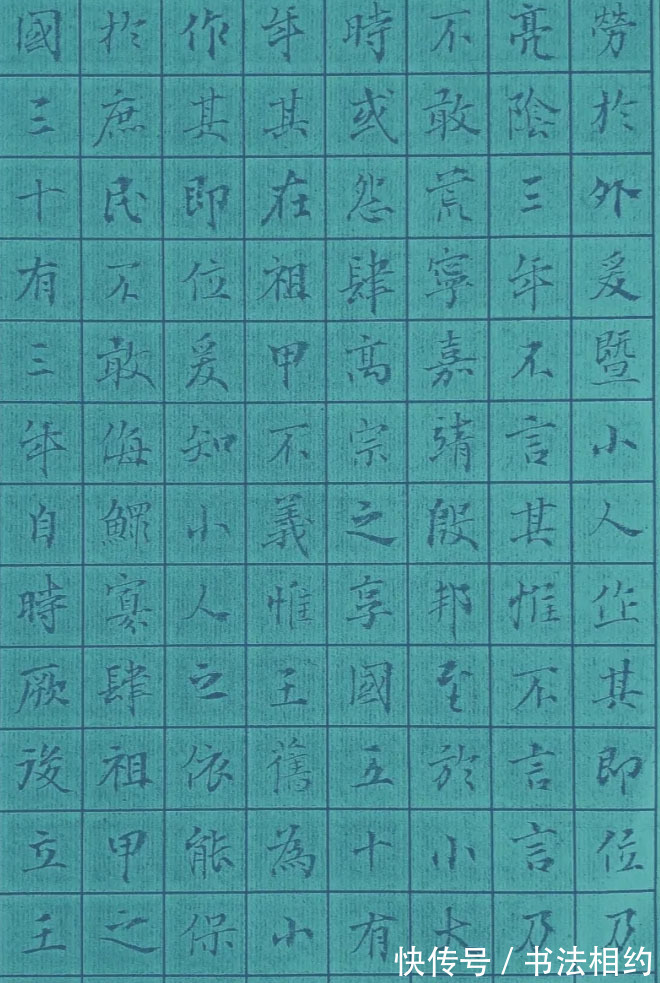 勞於外爰暨小人作其即位乃
亮陰三年不言其惟不言言乃
不敢荒寧嘉靖殷邦至於小大
時或怨肆高宗之享國五十有
年其在祖甲不義惟王舊為小
作其即位爰知小人之依能保
於庶民不敢侮鰥寡肆祖甲之
國三十有三年自時厥後立王
快传号 / 书法相约